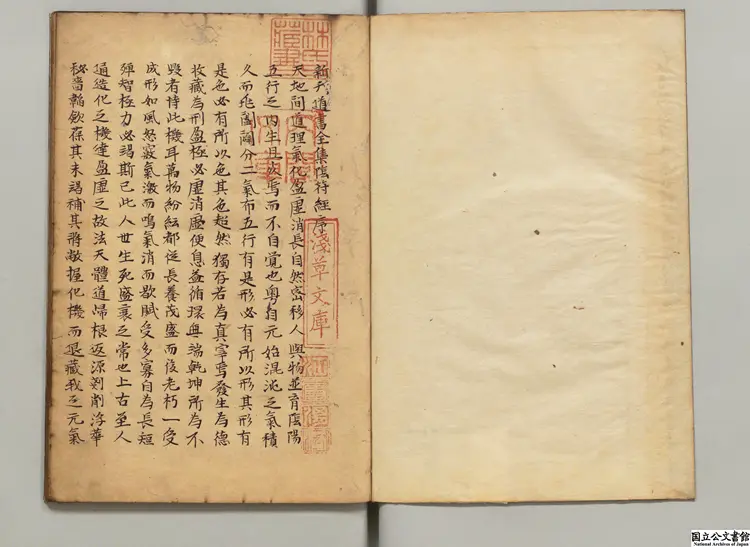 新刊道書全集陰符經序
天地間道理氣化盈虛消長自然密移人與物並育陰陽
五行之內生且成焉而不自覺也粵自元始混沌之氣積
久而兆闔闢分二氣布五行有是形必有所以形其形有
是色必有所以色其色超然獨存若為真宰焉發生為德
收藏為刑盈極必虛消虛便息益循環無端乾坤所為不
毀者恃此機耳萬物紛紜都從長養茂盛而後老朽一受
成形如風怒竅氣激而鳴氣消而歇賦受多寡自為長短
殫智極力必竭斯已此人世生死盛衰之常也上古至人
通造化之機達盈虛之故法天體道歸根返源剥削浮華
秘嗇韜飲葆其未竭補其將敝握化機而退藏我之元氣
淺草文庫
国立公文書館
National Archives of Japan